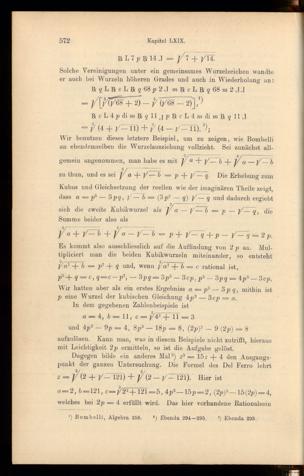 572 Kapitel LXIX.
R L 7 p R 14 J = √7 + √14.
Solche Vereinigungen unter ein gemeinsames Wurzelzeichen wandte
er auch bei Wurzeln höheren Grades und auch in Wiederholung an:
R q L R c L R q 68 p 2 J m R c L R q 68 m 2 J J
= √[∛(√68 + 2) − ∛(√68 − 2)],¹)
R c L 4 p di m R q 11 J p R c L 4 m di m R q 11 J
= ∛(4 + √−11) + ∛(4 − √−11).²);
Wir benutzen dieses letztere Beispiel, um zu zeigen, wie Bombelli
an ebendemselben die Wurzelausziehung vollzieht. Sei zunächst all-
gemein angenommen, man habe es mit ∛a + √−b + ∛a − √−b
zu thun, und es sei ∛a + √−b = p + √−q. Die Erhebung zum
Kubus und Gleichsetzung der reellen wie der imaginären Theile zeigt,
dass a = p³ − 3pq, √−b = (3p² − q) √−q und dadurch ergiebt
sich die zweite Kubikwurzel als ∛a − √−b = p − √−q, die
Summe beider also als
∛a + √−b + ∛a − √−b = p + √−q + p − √−q = 2p.
Es kommt also ausschliesslich auf die Auffindung von 2p an. Mul-
tiplicirt man die beiden Kubikwurzeln miteinander, so entsteht
∛a² + b = p² + q und, wenn ∛a² + b = c rational ist,
p² + q = c, q = c − p², − 3pq = 3p³ − 3cp, p³ − 3pq = 4p³ − 3cp.
Wir hatten aber als ein erstes Ergebniss a = p³ − 3pq, mithin ist
p eine Wurzel der kubischen Gleichung 4p³ − 3cp = a.
In dem gegebenen Zahlenbeispiele ist
a = 4, b = 11, c = ∛4² + 11 = 3
und 4p³ − 9p = 4, 8p³ − 18p = 8, (2p)³ − 9(2p) = 8
aufzulösen. Kann man, was in diesem Beispiele nicht zutrifft, hieraus
mit Leichtigkeit 2p ermitteln, so ist die Aufgabe gelöst.
Dagegen bilde ein anderes Mal³) x³ = 15x + 4 den Ausgangs-
punkt der ganzen Untersuchung. Die Formel des Del Ferro lehrt
x = ∛(2 + √−121) + ∛(2 − √−121). Hier ist
a = 2, b = 121, c = ∛2² + 121 = 5, 4p³ − 15p = 2, (2p)³ − 15(2p) = 4,
welches bei 2p = 4 erfüllt wird. Das hier vorhandene Rationalsein
¹) Bombelli, Algebra 356. ²) Ebenda 294—295. ³) Ebenda 293.